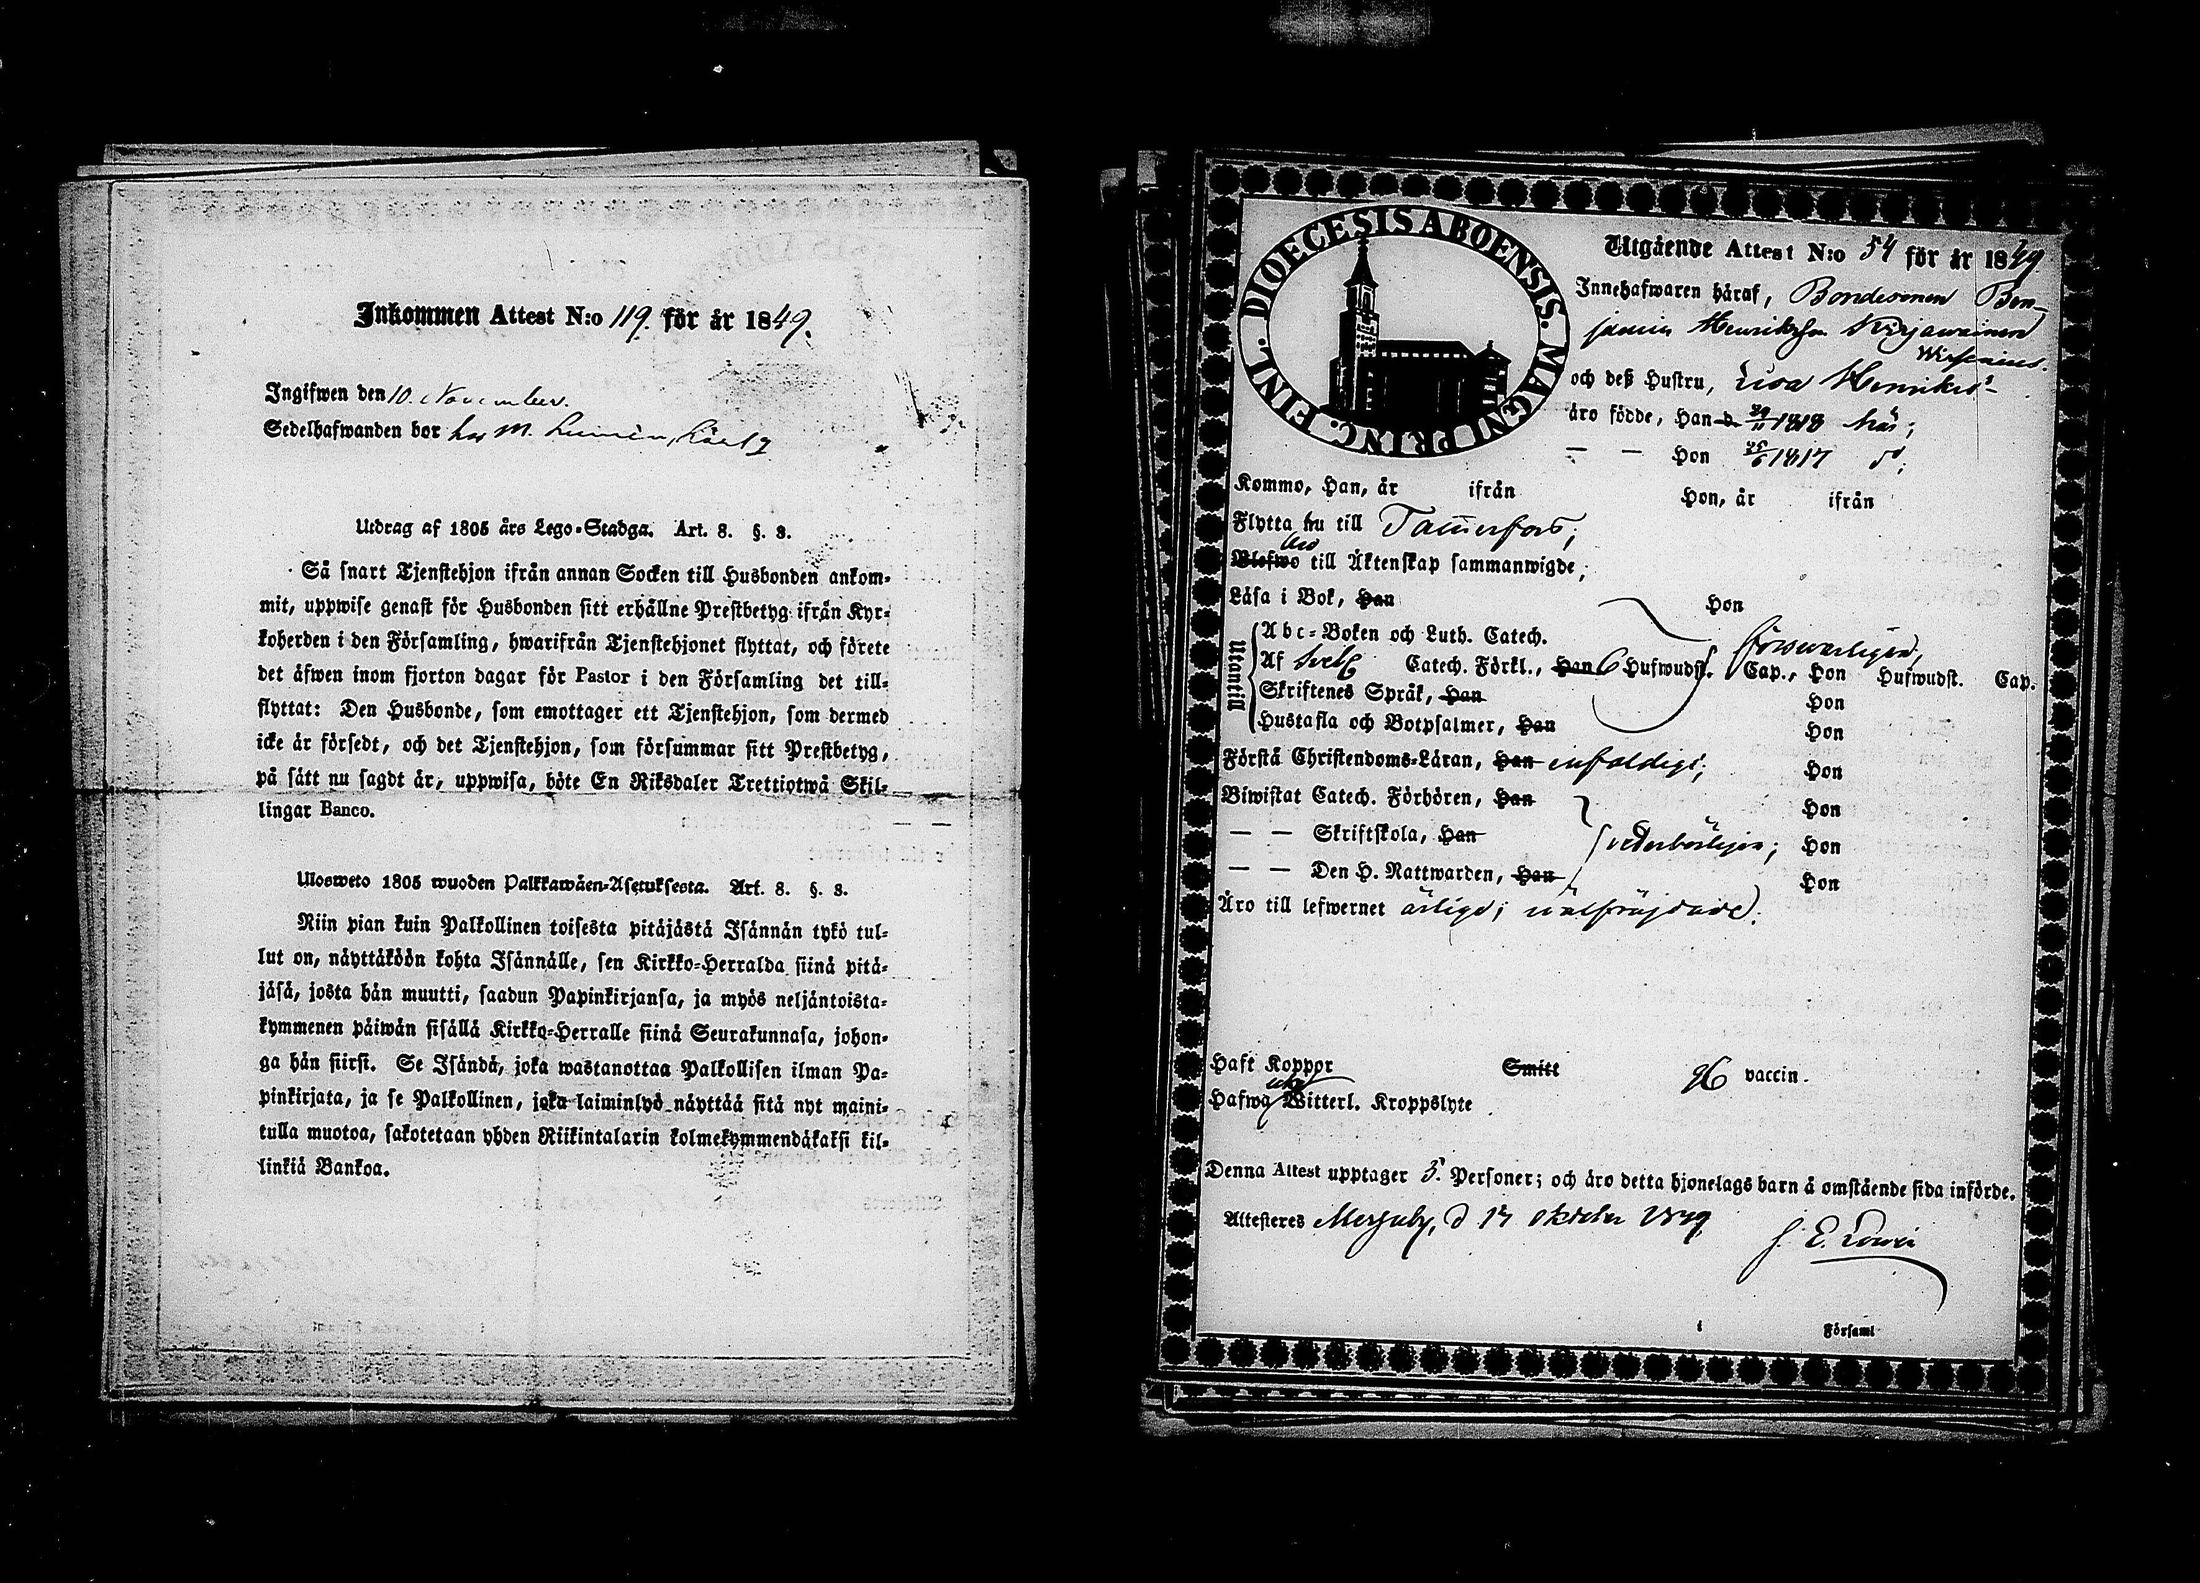 Inkommen Attest N:o 119. för år 1849.
Ingifwen den 10. November.
Sedelhafwanden bor hos M.
Utdrag af 1805 års Lego-Stadga. Art. 8. §. 3.
Så snart Tjenstehjon ifrån annan Socken till Husbonden ankom-
mit, uppwise genast för Husbonden sitt erhållne Prestbetyg ifrån Kyr-
koherden i den Församling, hwarifrån Tjenstehjonet flyttat, och förete
det äfwen inom fjorton dagar för Pastor i den Församling det till-
flyttat: Den Husbonde, som emottager ett Tjenstehjon, som dermed
icke är försedt, och det Tjenstehjon, som försummar sitt Prestbetyg,
på sätt nu sagdt är, uppwisa, böte En Riksdaler Trettiotwå Skil-
lingar Banco.
Ulosweto 1805 wuoden Palkkawäen-Asetuksesta. Art. 8. §. 3.
Niin pian kuin Palkollinen toisesta pitäjästä Isännän tykö tul-
lut on, näyttäköön kohta Isännälle, sen Kirkko-Herralda siinä pitä-
jäsä, josta hän muutti, saadun Papinkirjansa, ja myös neljäntoista-
kymmenen päiwän sisällä Kirkko-Herralle siinä Seurakunnasa, johon-
ga hän siirsi. Se Isändä, joka wastanottaa Palkollisen ilman Pa-
pinkirjata, ja se Palkollinen, joka laiminlyö näyttää sitä nyt maini-
tulla muotoa, sakotetaan yhden Riikintalarin kolmekymmendäkaksi kil-
linkiä Bankoa.
DIOECESIS ABOENSIS. MAGNI PRINC. FINL.
Utgående Attest N:o 54 för år 1849.
Innehafwaren häraf, Bondesonen Ben-
jamin Henriksson Kirjawainen
och deß Hustru, Lisa Henriksd:r
äro födde, Han d. 29/11 1818 här;
— — Hon 25/6 1817 d:o;
Kommo, Han, år ifrån Hon, år ifrån
Flytta nu till Tammerfors;
äro
Blefwo till Äktenskap sammanwigde;
Läsa i Bok, Han Hon
Utantill
Abc-Boken och Luth. Catech. försvarligen,
Af Sveb. Catech. Förkl., Han 6 Hufwudst. Cap., Hon Hufwudst. Cap.
Skriftenes Språk, Han Hon
Hustafla och Botpsalmer, Han Hon
Förstå Christendoms-Läran, Han enfaldigt; Hon
Biwistat Catech. Förhören, Han Hon
— — Skriftskola, Han vederbörligen; Hon
— — Den H. Nattwarden, Han Hon
Äro till lefwernet ärlige; välfräjdade.
Haft Koppor Smitt vaccin.
Hafwa Witterl. Kroppslyte
Denna Attest upptager 5. Personer; och äro detta hjonelags barn å omstående sida införde.
Attesteres Messuby, d 17 Oktober 1849
i Församl